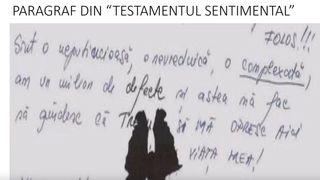 PARAGRAF DIN “TESTAMENTUL SENTIMENTAL”
FOLOS!!!
Sînt o neputincioasă, o nevrednică, o complexată,
am un milion de defecte și astea mă fac
să gîndesc că TR SĂ MĂ OPRESC AICI
VIAȚA MEA!